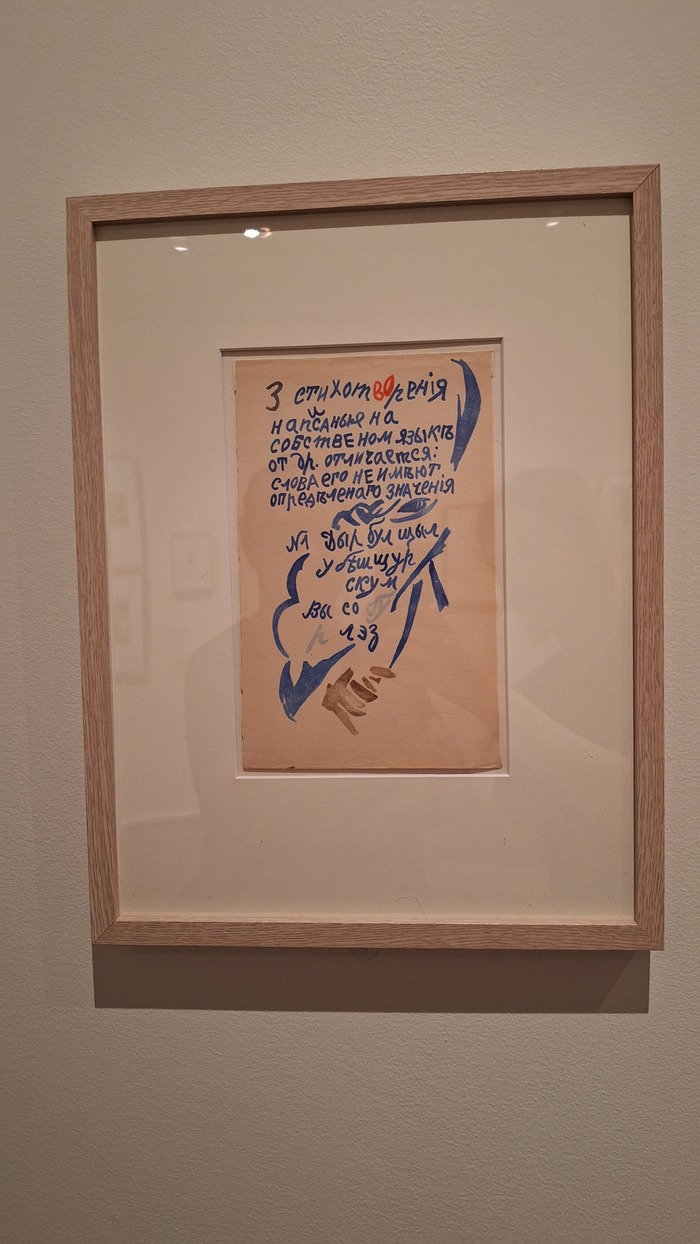 3 стихотворенія
напсаныя на
собственом языкѣ
от др. отличается:
слова его не имѣют
опредѣленаго значенія
№1 Дыр бул щыл
убѣшщур
скум
вы со бу
р лэз